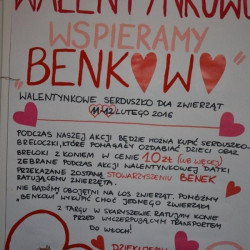 WALENTYNKOWO
WSPIERAMY
"BENKOWO"
WALENTYNKOWE SERDUSZKO DLA ZWIERZĄT
11-12 LUTEGO 2016
PODCZAS NASZEJ AKCJI BĘDZIE MOŻNA KUPIĆ SERDUSZKO-
BRELOCZKI, KTÓRE POMAGAŁY OZDABIAĆ DZIECI ORAZ
BRELOKI Z KONIEM W CENIE 10 ZŁ (LUB WIĘCEJ)
ZEBRANE PODCZAS AKCJI WALENTYNKOWEJ DATKI
PRZEKAZANE ZOSTANĄ STOWARZYSZENIU BENEK
RATUJĄCEMU ZWIERZĘTA.
NIE BĄDŹMY OBOJĘTNI NA LOS ZWIERZĄT POMÓŻMY
"BENKOWI" WYKUPIĆ CHOĆ JEDNEGO ZWIERZAKA
Z TARGU W SKARYSZEWIE RATUJĄC KONIE
PRZED WYCZERPUJĄCYM TRANSPORTEM
DO WŁOCH!
DZIĘKUJEMY